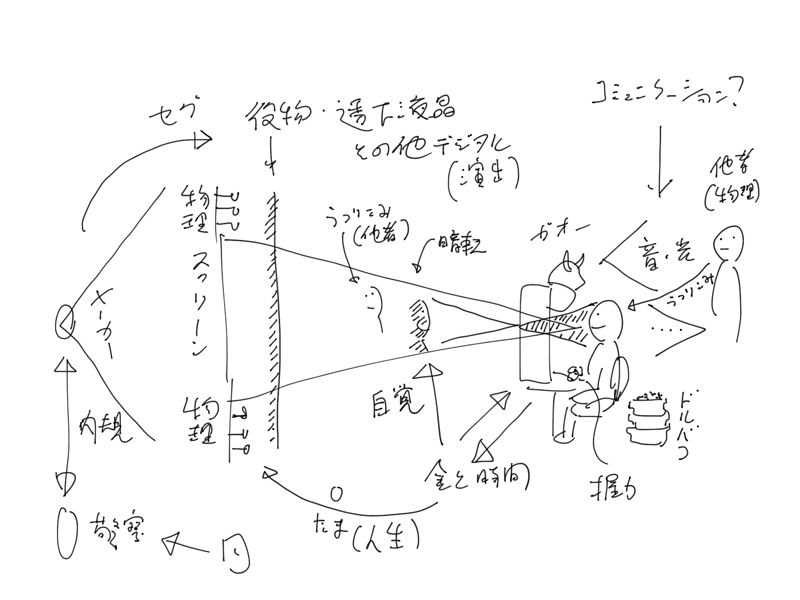 セグ
役物・透下液晶
その他デジタル
(演出)
コミュニケーション?
他者
(物理)
物理
うつりこみ
(他者)
暗転
ガオー
音・光
うつりこみ
.....
メーカー
スクリーン
内規
物理
自覚
ドル箱
金と時間
握力
たま(人生)
警察